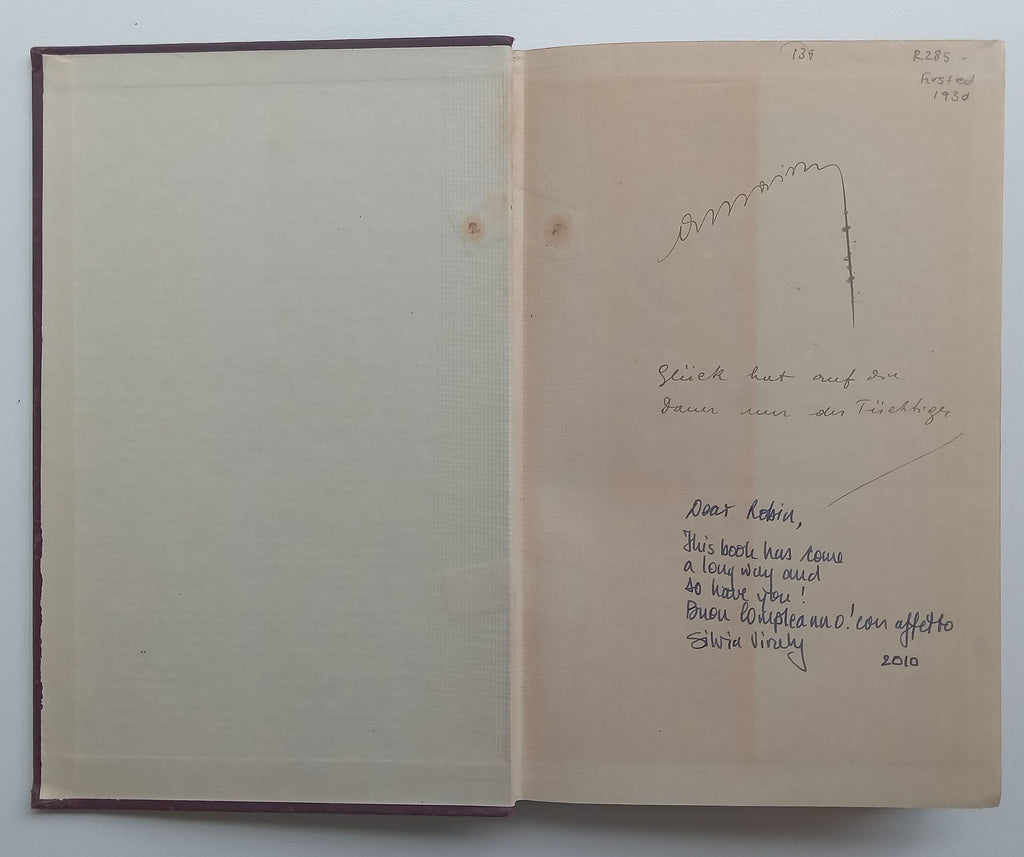 139
R285 -
First ed
1930
Glück hat auf die
Dauer nur der Tüchtige
Dear Robin,
This book has come
a long way and
so have you!
Buon Compleanno! con affetto
Silvia Viraly
2010